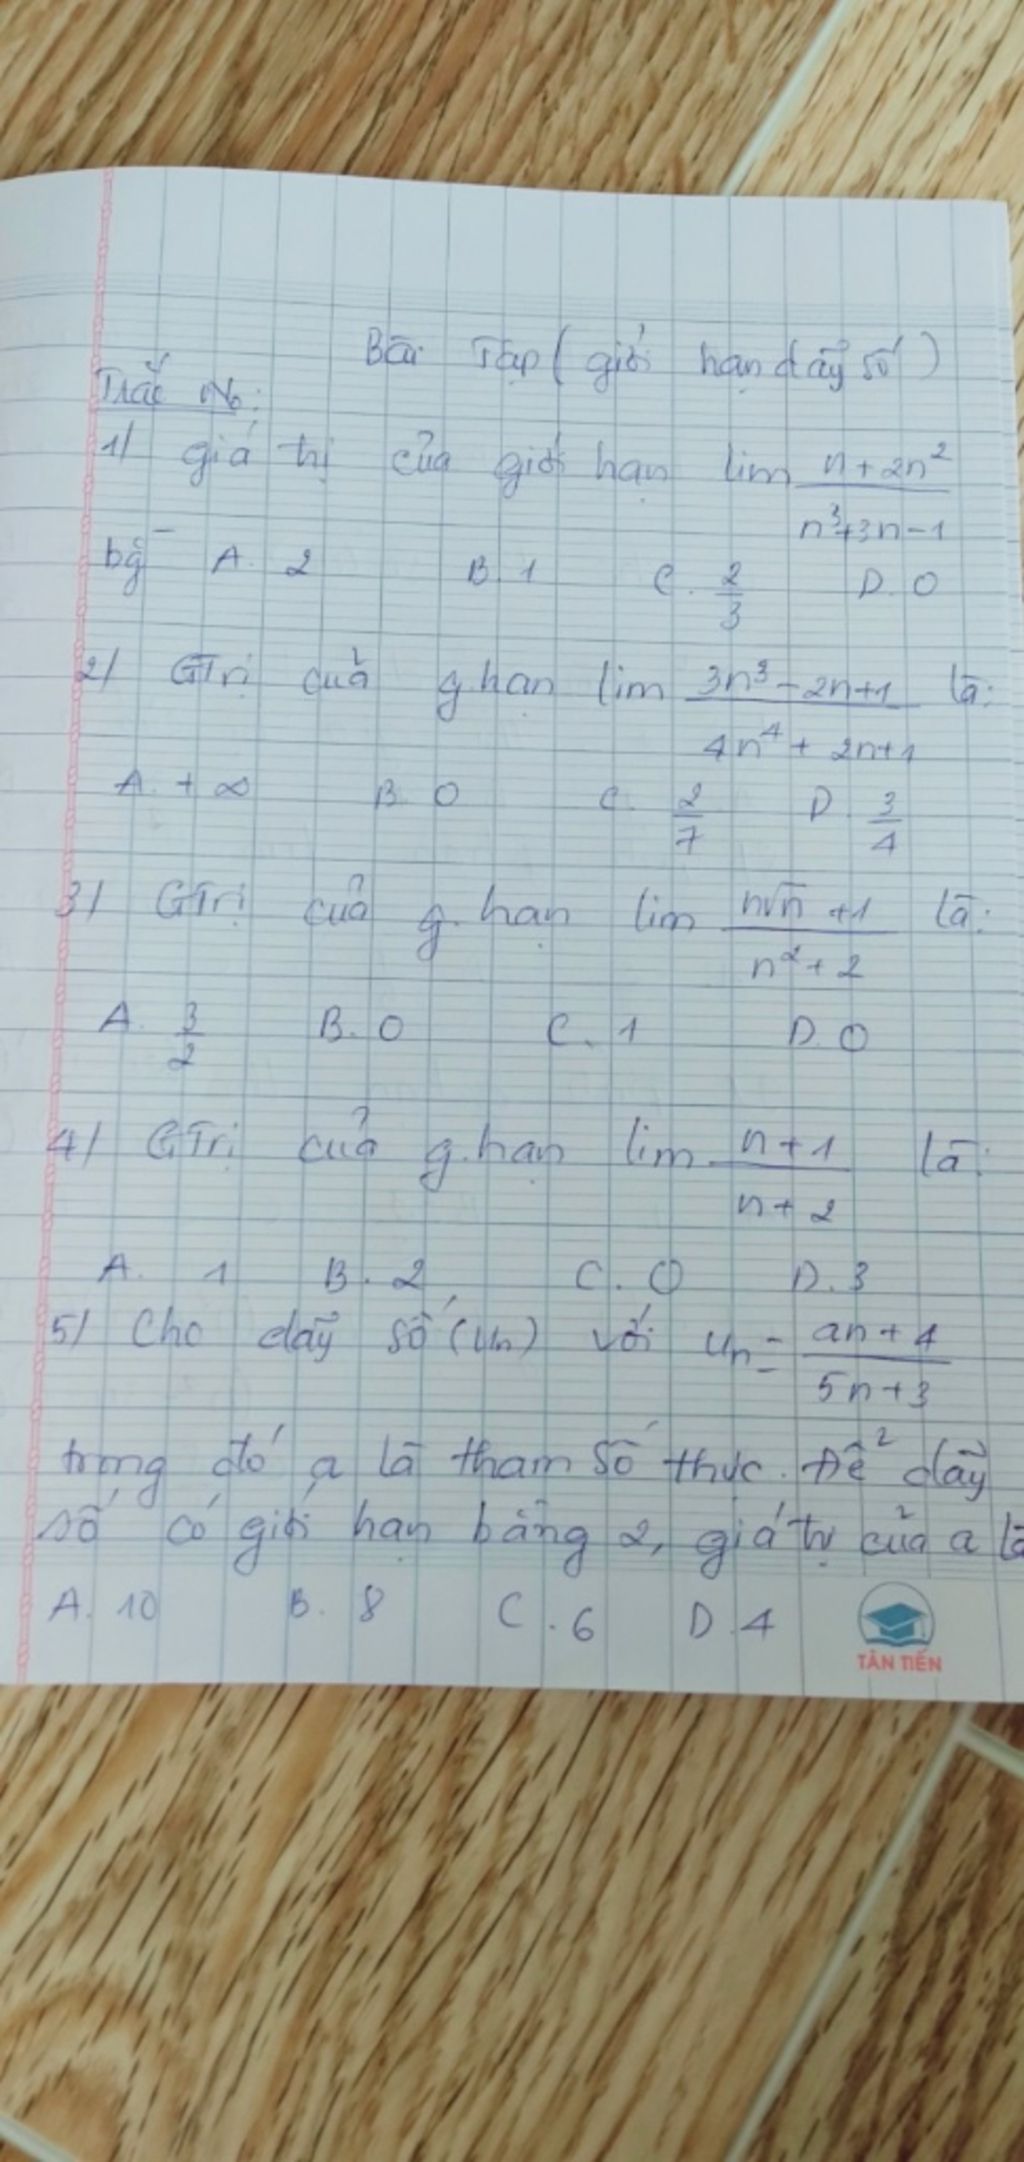 Bài Tập (giới hạn dãy số)
Trắc No:
1/ giá trị của giới hạn lim (n + 2n²)/(n³+3n-1)
bg A. 2 B. 1 C. 2/3 D. 0
2/ GTrị của g.hạn lim (3n³ - 2n+1)/(4n⁴ + 2n+1) là:
A. +∞ B. 0 C. 2/7 D. 3/4
3/ GTrị của g.hạn lim (n√n + 1)/(n² + 2) là:
A. 3/2 B. 0 C. 1 D. 0
4/ GTrị của g.hạn lim (n + 1)/(n + 2) là:
A. 1 B. 2 C. 0 D. 3
5/ Cho dãy số (Un) với Un = (an + 4)/(5n + 3)
trong đó a là tham số thực. Để dãy
số có giới hạn bằng 2, giá trị của a là
A. 10 B. 8 C. 6 D. 4
TÂN TIẾN